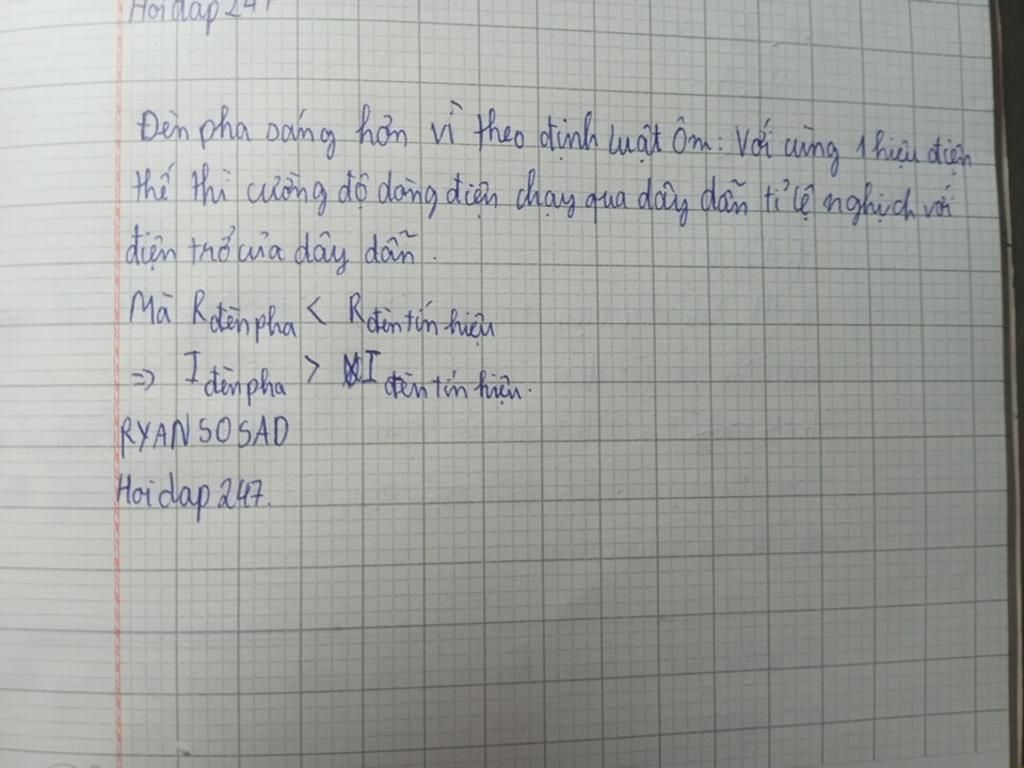 Hoidap 247
Đèn pha sáng hơn vì theo định luật Ôm: Với cùng 1 hiệu điện
thế thì cường độ dòng điện chạy qua dây dẫn tỉ lệ nghịch với
điện trở của dây dẫn.
Mà R đèn pha < R đèn tín hiệu
=> I đèn pha > I đèn tín hiệu.
RYANSOSAD
Hoidap 247.